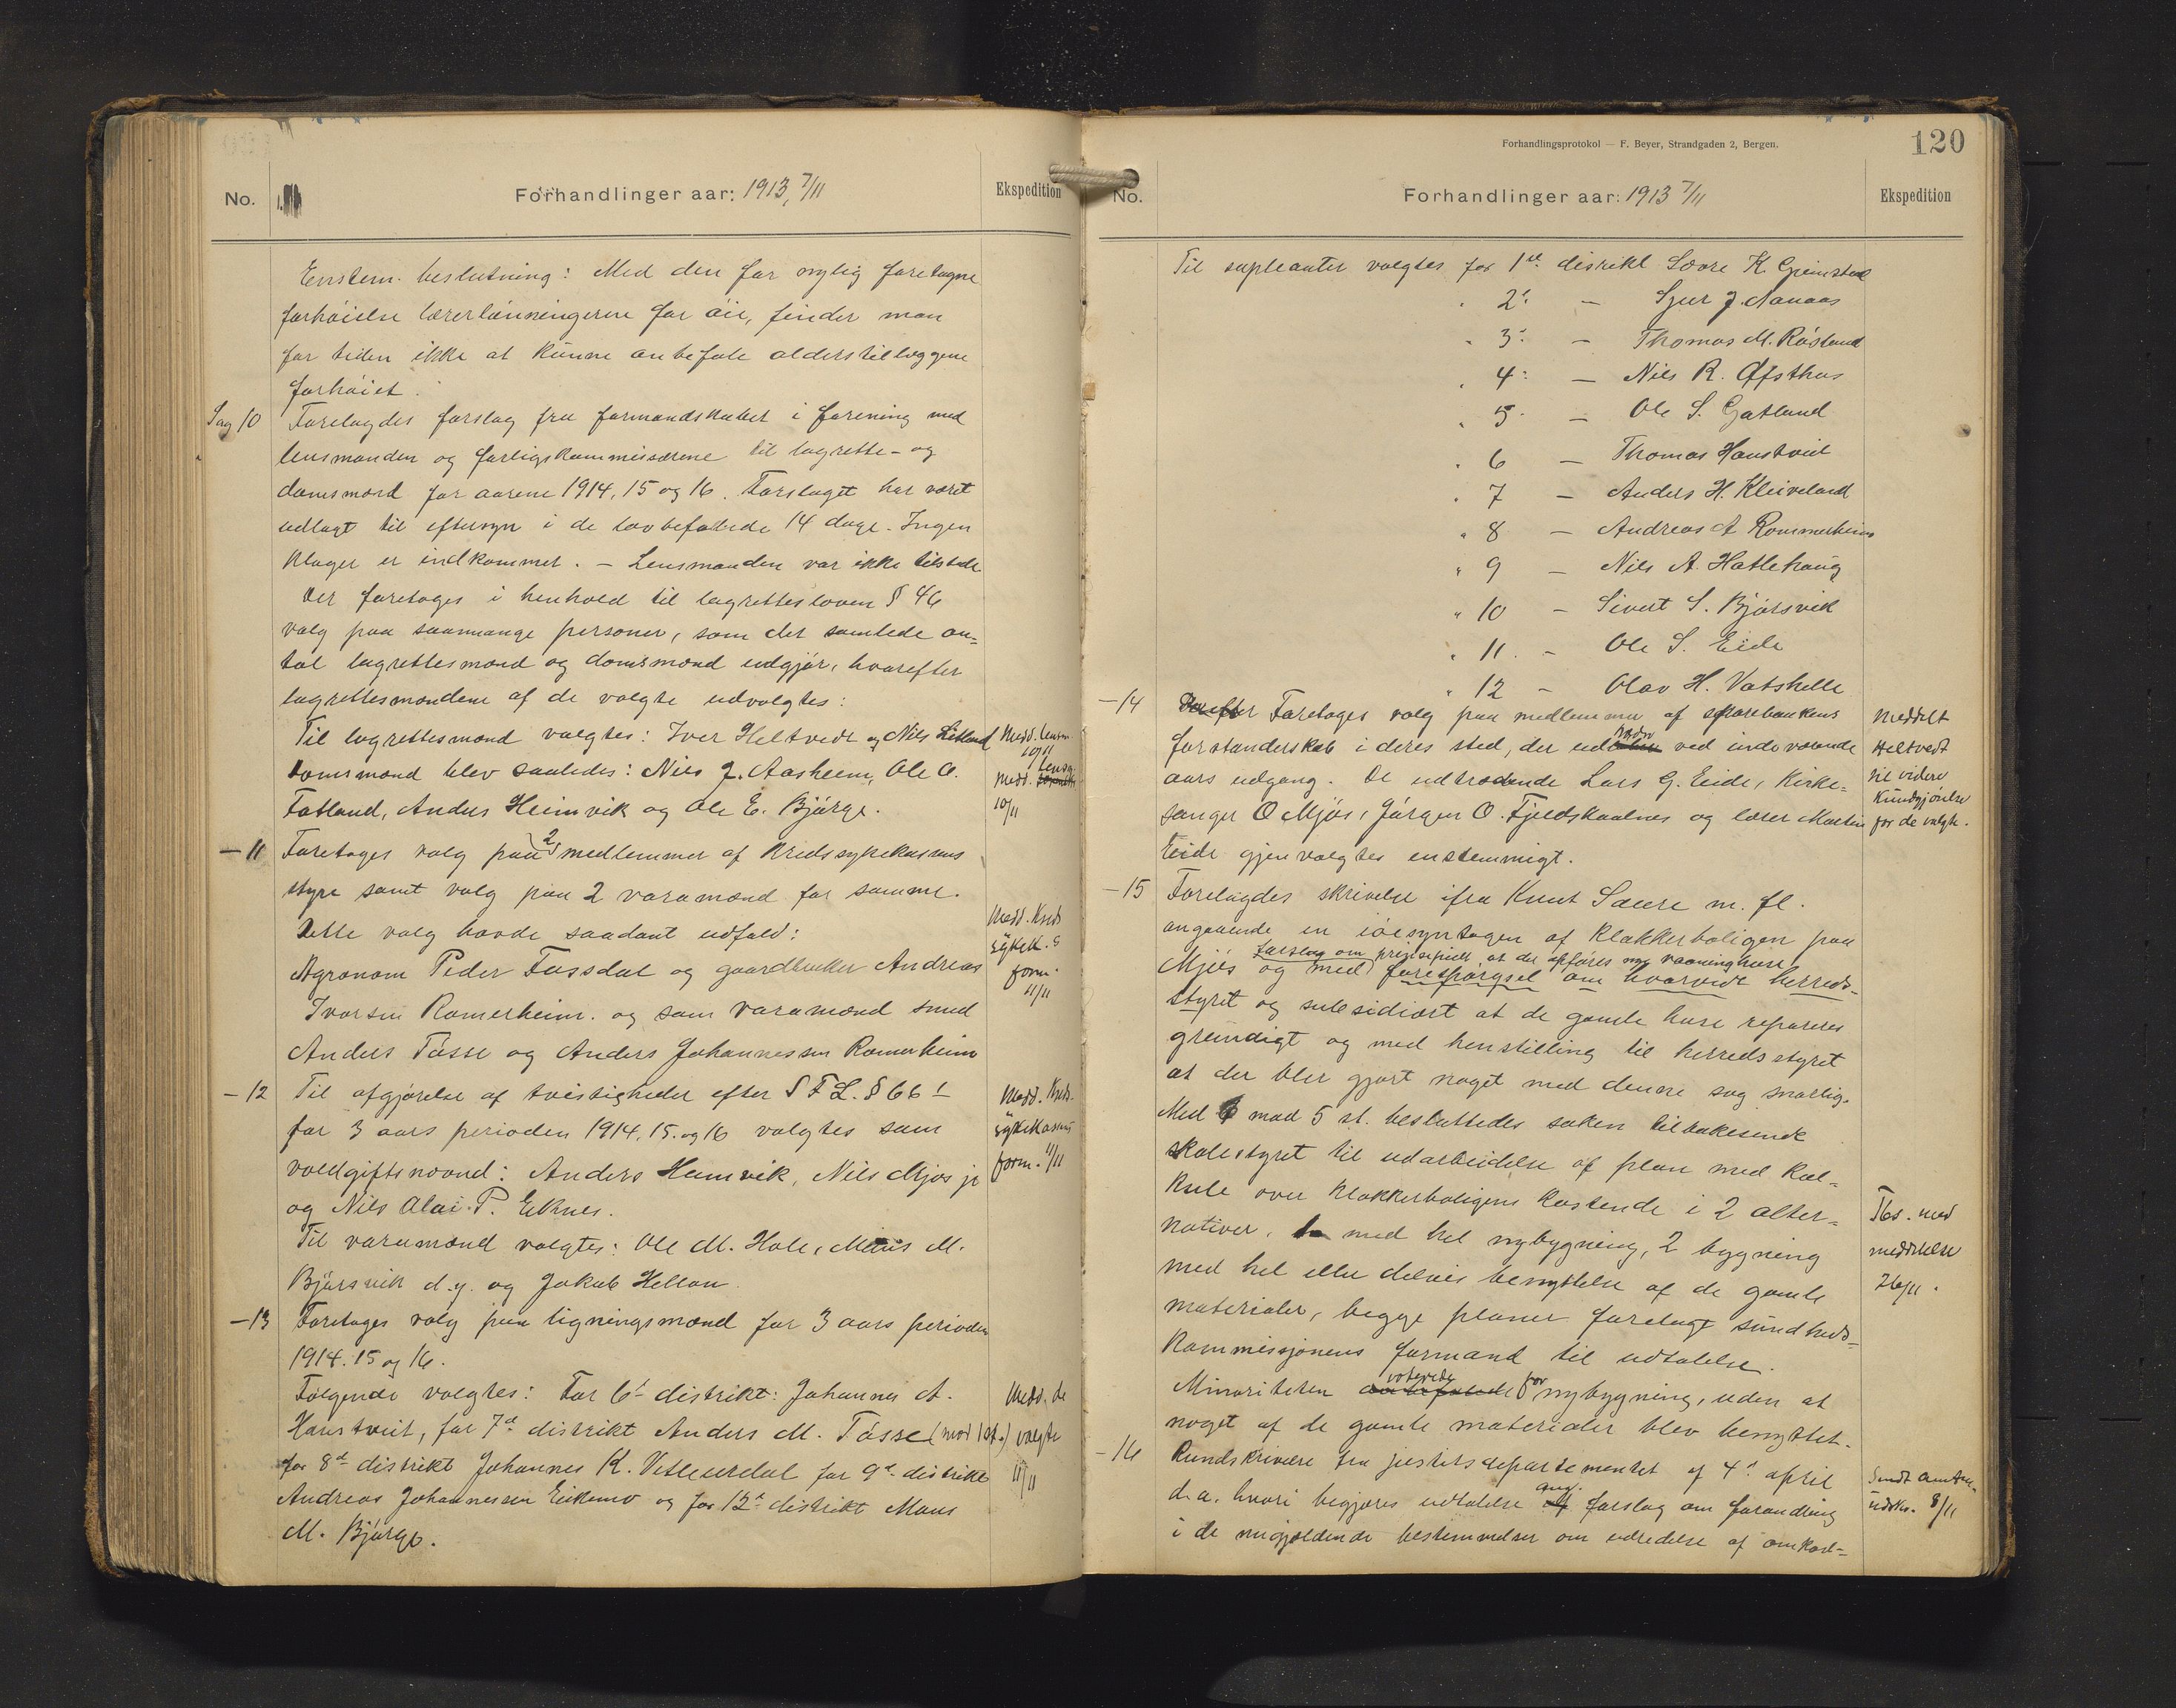 No.
Forhandlinger aar: 1913, 7/11
Ekspedition
Enstem. beslutning: Med den for nylig foretagne
forhöielse lærerlönningerne for öie, finder man
for tiden ikke at kunne anbefale alderstillæggene
forhöiet.
Sag 10 Forelagdes forslag fra formandskabet i forening med
lensmanden og forligskommissærene til lagrette- og
domsmænd for aarene 1914, 15 og 16. Forslaget har været
udlagt til eftersyn i de lovbefalede 14 dage. Ingen
klager er indkommet. - Lensmanden var ikke tilstede
Der foretoges i henhold til lagretteloven § 46
valg paa saamange personer, som det samlede an=
tal lagrettesmænd og domsmænd udgjör, hvorefter
lagrettesmændene af de valgte udvalgtes:
Til lagrettesmænd valgtes: Iver Heltvedt og Nils Litland
Medd. lensm
10/11
Domsmænd blev saaledes: Nils J. Aasheim, Ole O.
Medd. lensm.
Fatland, Anders Heimvik og Ole E. Björge.
10/11
- 11 Foretoges valg paa 2 medlemmer af kredssykekassens
styre samt valg paa 2 varamænd for samme.
Dette valg havde saadant udfald:
Medd. Kreds
sykek.s
form.
11/11
Agronom Peder Fossdal og gaardbruker Andreas
Ivarsen Romerheim. og som varamænd smed
Anders Tösse og Anders Johannessen Romerheim
- 12 Til afgjörelse af tvistigheder efter S F L. § 66 1
Medd. Kreds.
sykekassens
form. 11/11
for 3 aars perioden 1914, 15. og 16 valgtes som
voldgiftsnævnd: Anders Hamvik, Nils Mjös jr
og Nils Olai P. Eknes.
Til varamænd valgtes: Ole M. Hole, Mons M.
Björsvik d.y. og Jakob Helland
- 13 Foretoges valg paa ligningsmænd for 3 aars perioden
1914. 15 og 16.
Fölgende valgtes: For 6te distrikt: Johannes A.
Medd. de
Hanstveit, for 7de distrikt Anders M. Tösse (mod 1 st.)
valgte
for 8de distrikt Johannes K. Vetleurdal for 9de distrikt
11/11
Andreas Johannessen Eikemo og for 12te distrikt Mons
M. Björge.
Forhandlingsprotokol — F. Beyer, Strandgaden 2, Bergen.
120
No.
Forhandlinger aar: 1913 7/11
Ekspedition
Til supleanter valgtes for 1ste distrikt Sovre K. Greimstad
" 2: - Sjur J. Nanaas
" 3: - Thomas M. Rösland
" 4: - Nils R. Øfsthus
" 5. - Ole S. Gatland
" 6 - Thomas Hanstveit
" 7 - Anders H. Kleiveland
" 8 - Andreas A Rommerheim
" 9 - Nils A. Hatlehaug
" 10 - Sivert S. Björsvik
" 11. - Ole S. Eide
" 12 - Olav H. Vatshelle
- 14 Derefter Foretoges valg paa medlemmer af sparebankens
Meddelt
Heltvedt
til videre
kundgjörelse
for de valgte.
forstanderskab i deres sted, der udtræder ved indeværende
aars udgang. De udtrædende Lars G. Eide, kirke=
sanger O Mjös, Jörgen O. Fjeldskaalnes og lærer Martin
Eide gjenvalgtes enstemmigt.
- 15 Forelagdes skrivelse ifra Knut Saure m. fl.
angaaende en iöiesyntagen af klokkerboligen paa
forslag om prinsipielt at der opföres nyg vaaninghuse
Mjös og med forespörgsel om hvorvidt herreds-
styret og subsidiært at de gamle huse repareres
grundigt og med henstilling til herredsstyret
at der blir gjort noget med denne sag snarlig.
Med 6 mod 5 st. besluttedes saken tilbakesendt
skolestyret til udarbeidelse af plan med kal=
kule over klokkerboligens kostende i 2 alter=
Tbs. med
meddelelse
26/11.
nativer, 1 med hel nybygning, 2 bygning
med hel eller delvis benyttelse af de gamle
materialer, begge planer forelagt sundheds=
kommissjonens formand til udtalelse.
Minoriteten voterede for nybygning, uden at
noget af de gamle materialer blev benyttet.
- 16 Rundskrivelse fra justitsdepartementet af 4de april
Sendt amtm.
udskr. 8/11
d. a. hvori begjæres udtalelse ang. forslag om forandring
i de nugjældende bestemmelser om udredelse af omkost=